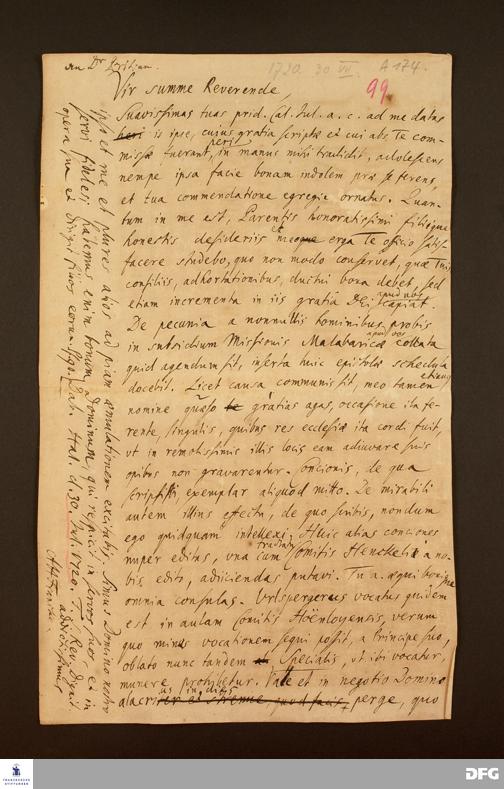 an Dr
1720. 30 VII.
A 174.
99
Vir summe Reverende,
Suavissimas tuas prid. Cal. Jul. a. c. ad me datas
heri is ipse, cujus gratia scriptae et cui abs Te com-
missae fuerant, heri in manus mihi tradidit, adolescens
nempe ipsa facie bonam indolem prae se ferens,
et tua commendatione egregie ornatus. Quan-
tum in me est, Parentis honoratissimi filiique
honestis desideriis meoque erga Te officio satis-
facere studebo, quo non modo conservet, quae Tuis
consiliis, adhortationibus, ductui bona debet, sed
etiam incrementa in iis gratia Dei apud nos capiat.
De pecunia a nonnullis hominibus probis
in subsidium Missionis Malabaricae apud vos collata
quid agendum sit, inserta huic epistolae schedula
docebit. Licet causa communis sit, meo tamen etiam
nomine quaeso te gratias agas, occasione ita fe-
rente, singulis, quibus res ecclesiae ita cordi fuit,
ut in remotissimis illis locis eam adiuvare suis
opibus non gravarentur. Concionis, de qua
scripsisti, exemplar aliquod mitto. De mirabili
autem illius effectu, de quo scribis, nondum
ego quidquam intellexi. Huic alias conciones
nuper editas, una cum tractatu Comitis Henckelii a no-
bis edito, adiiciendas putavi. Tu a. aequi bonique
omnia consulas. Urlspergerus vocatus quidem
est in aulam Comitis Hoënloyensis, verum
quo minus vocationem sequi possit, a Principe suo,
oblato nunc tandem Specialis, ut ibi vocatur,
munere prohibetur. Vale et in negotio Domini
alacrius in dies perge, quo
ipso et me et plures alios ad piam aemulationem excitabis. Simus Domino nostro
servi fideles: habemus enim bonum Dominum, qui respicit in servos suos, et in
opera sua et dirigit filios eorum. Hal. d. 30. Jul. 1720. T. Rev. Dignit
addictissimus
AHFrancke
FRANCKESCHE STIFTUNGEN
DFG